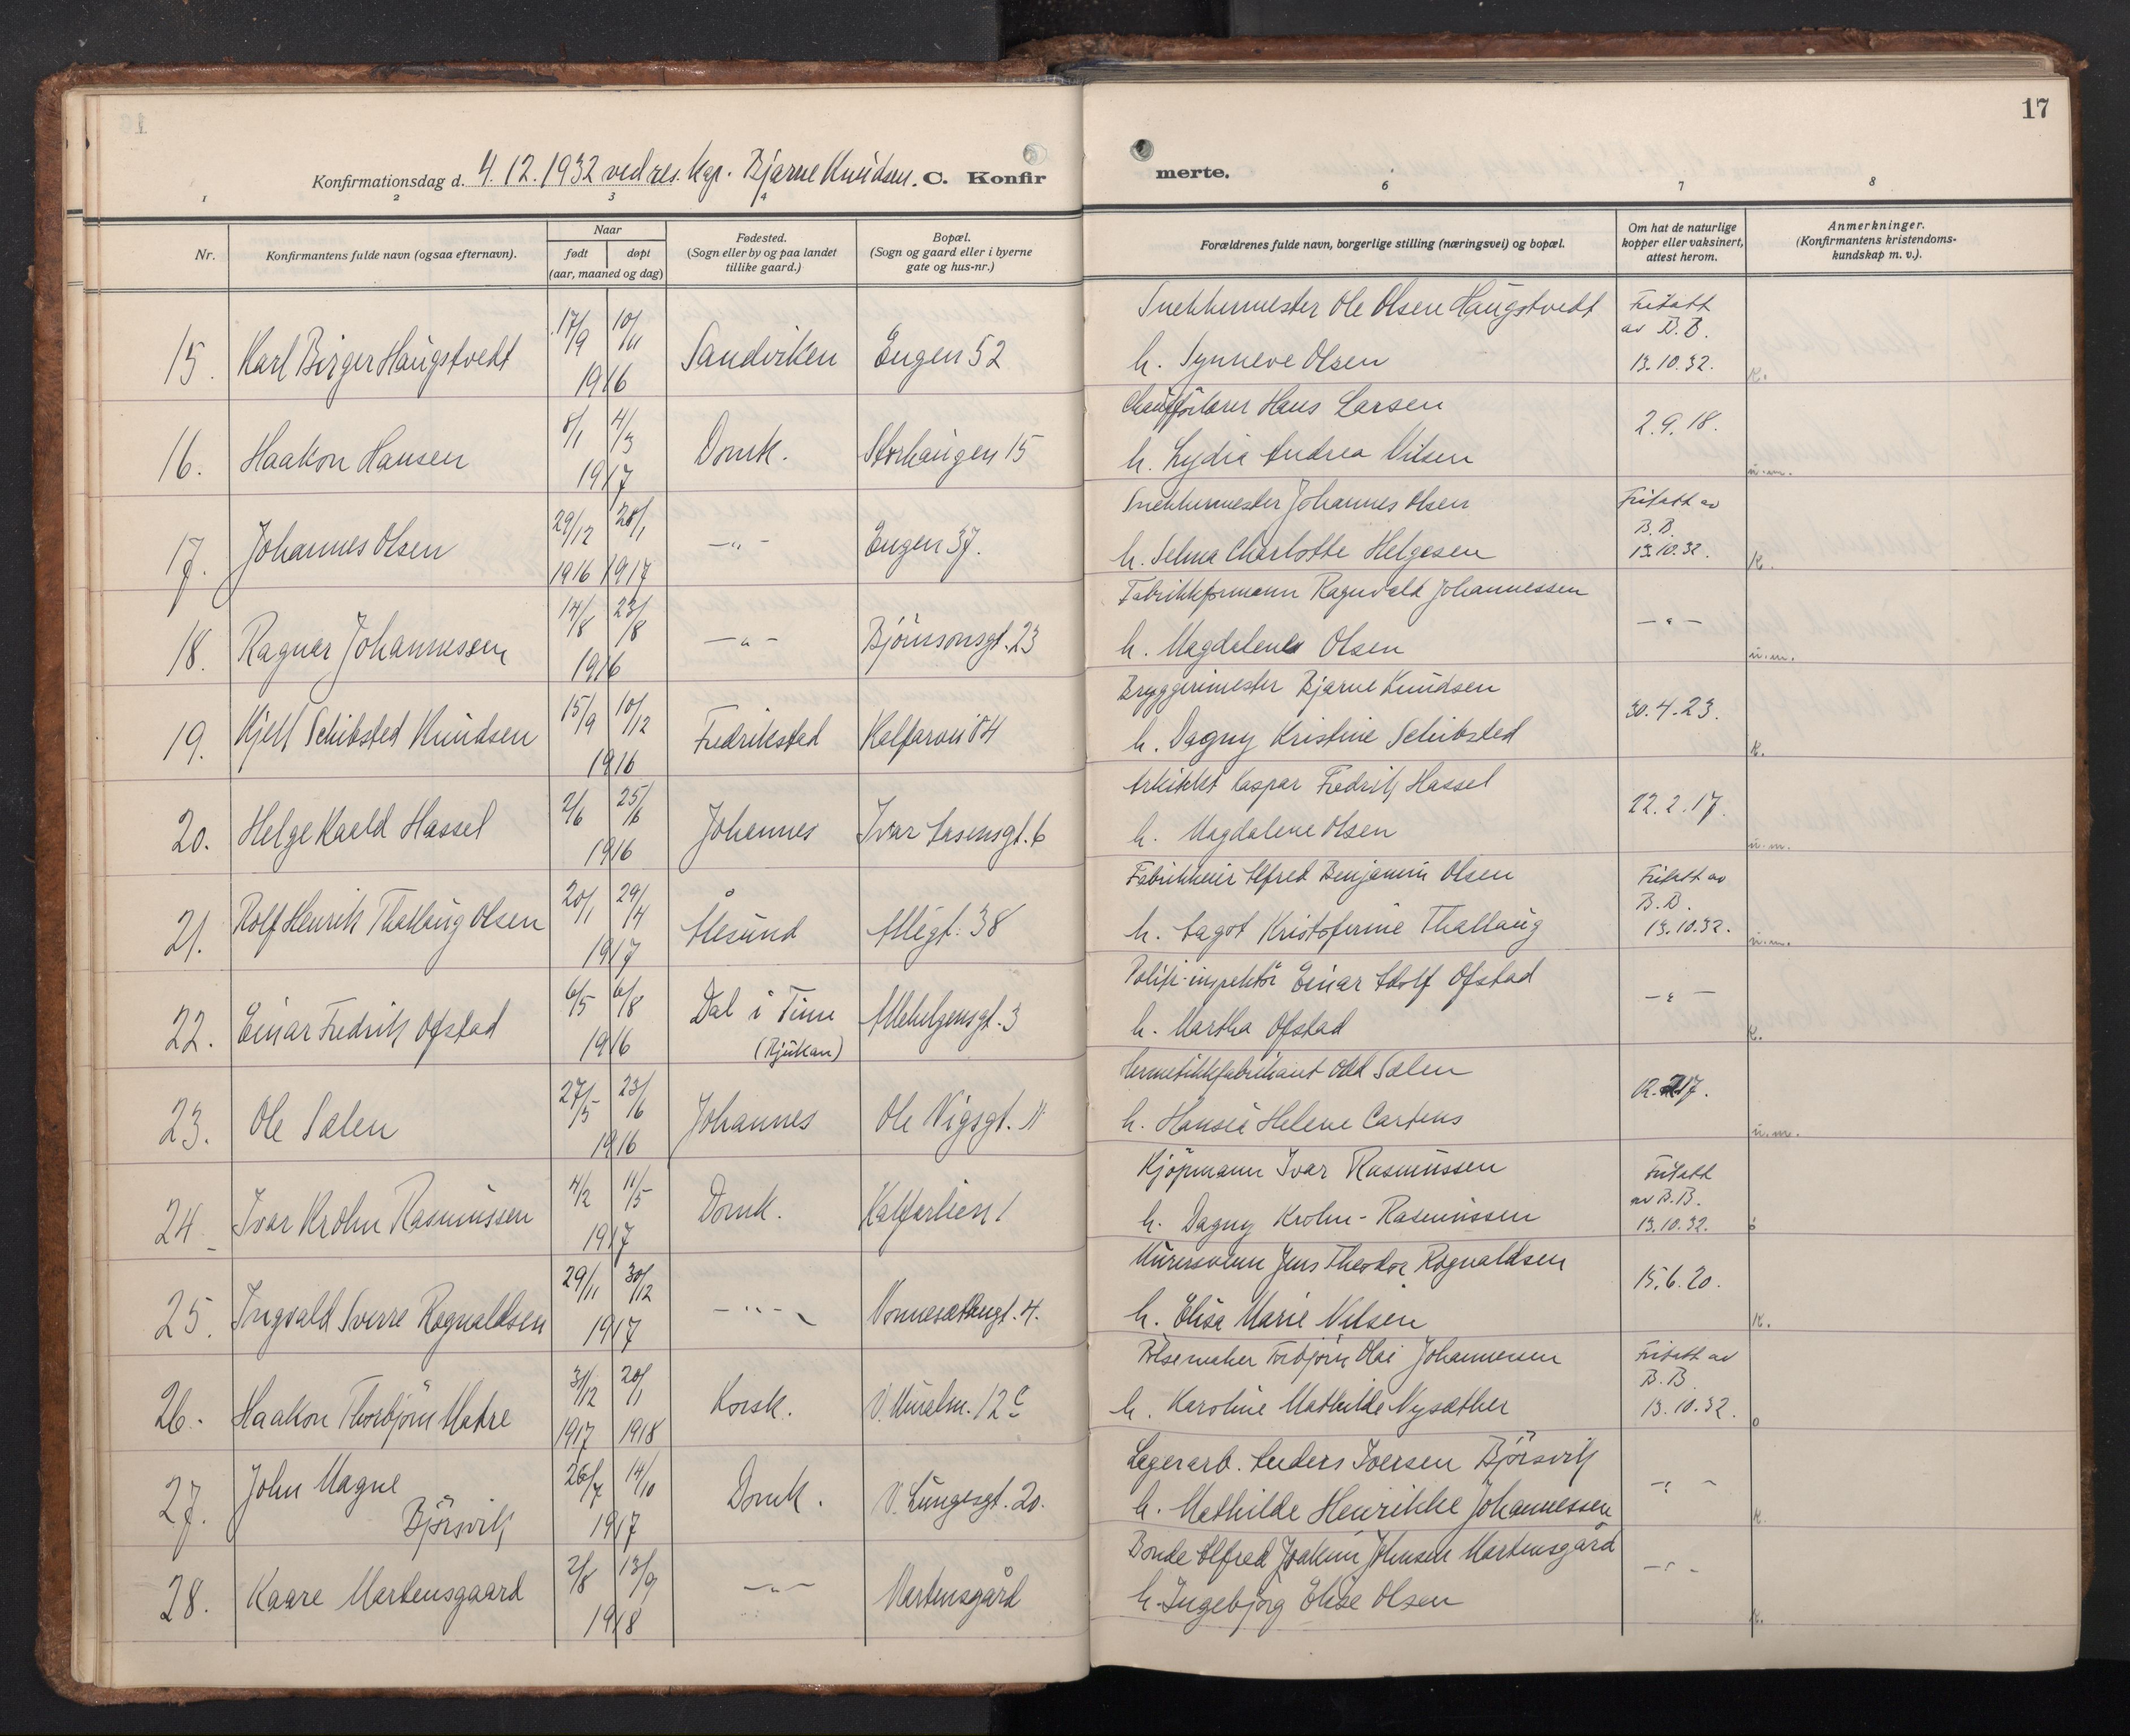 17
Konfirmationsdag d. 4.12.1932 ved res. kap. Bjarne Knudsen. C. Konfir
merte.
1 2 3 4
6 7 8
Nr.
Konfirmantens fulde navn (ogsaa efternavn).
Naar
født døpt
(aar, maaned og dag)
Fødested.
(Sogn eller by og paa landet
tillike gaard.)
Bopæl.
(Sogn og gaard eller i byerne
gate og hus-nr.)
Forældrenes fulde navn, borgerlige stilling (næringsvei) og bopæl.
Om hat de naturlige
kopper eller vaksinert,
attest herom.
Anmerkninger.
(Konfirmantens kristendoms-
kundskap m. v.).
15. Karl Birger Haugstvedt 17/9 10/11 1916 Sandviken Engen 52
Snekkermester Ole Olsen Haugstvedt
h. Synneve Olsen
Fritatt
av B.B.
13.10.32. K.
16. Haakon Hansen 8/1 4/3 1917 Domk. Storhaugen 15
Chauffør Hans Larsen
h. Lydia Andrea Nilsen
2.9.18. u.m.
17. Johannes Olsen 29/12 28/1 1916 1917 -"- Engen 37.
Snekkermester Johannes Olsen
h. Selma Charlotte Helgesen
Fritatt av
B.B.
13.10.32. K.
18. Ragnar Johannessen 14/8 23/8 1916 -"- Bjönssonsgt. 23
Fabrikkformann Ragnvald Johannessen
h. Magdalena Olsen
-"- u.m.
19. Kjell Schibsted Knudsen 15/9 10/12 1916 Fredrikstad Kalfarvei 84
Bryggerimester Bjarne Knudsen
h. Dagny Kristine Schibsted
30.4.23. K.
20. Helge Kaald Hassel 2/6 25/6 1916 Johannes Ivar Aasensgt. 6
Arkitekt Kaspar Fredrik Hassel
h. Magdalene Olsen
22.2.17. u.m.
21. Rolf Henrik Thallaug Olsen 20/1 29/4 1917 Ålesund Allégt. 38
Fabrikkeier Alfred Benjamin Olsen
h. Aagot Kristoferine Thallaug
Fritatt av
B.B.
13.10.32. u.m.
22. Einar Fredrik Ofstad 6/5 6/8 1916 Dal i Tinn Allehelgensgt. 3
(Rjukan)
Politi-inspektör Einar Adolf Ofstad
h. Martha Ofstad
-"- K.
23. Ole Salen 27/5 23/6 1916 Johannes Ole Vigsgt. 11
Hermetikkfabrikant Odd Salen
h. Hansia Helene Cartens
u.m.
24. Ivar Krohn Rasmussen 4/2 11/5 1917 Domk. Kalfarlien 1
Kjöpmann Ivar Rasmussen
h. Dagny Krohn-Rasmussen
Fritatt
av B.B.
13.10.32.
25. Ingvald Sverre Rognaldsen 29/11 30/12 1917 -"- Nonnesætergt. 4.
Murersvenn Jens Theodor Rognaldsen
h. Elisa Marie Nilsen
15.6.20. K.
26. Haakon Thorbjörn Matre 31/12 20/1 1917 1918 Korsk. V. Muralm. 12 c
Pölsemaker Torbjörn Olai Johannessen
h. Karoline Mathilde Nysæther
Fritatt av
B.B.
13.10.32.
27. John Magne
Björsvik 26/7 14/10 1917 Domk. V. Lungegt. 20.
Lagerarb. Anders Iversen Björsvik
h. Mathilde Henrikke Johannessen
-"- K.
28. Kaare Martensgaard 2/8 13/9 1918 -"- Martensgård
Bonde Alfred Joakim Johnsen Martensgård
h. Ingebjörg Elise Olsen
-"- K.